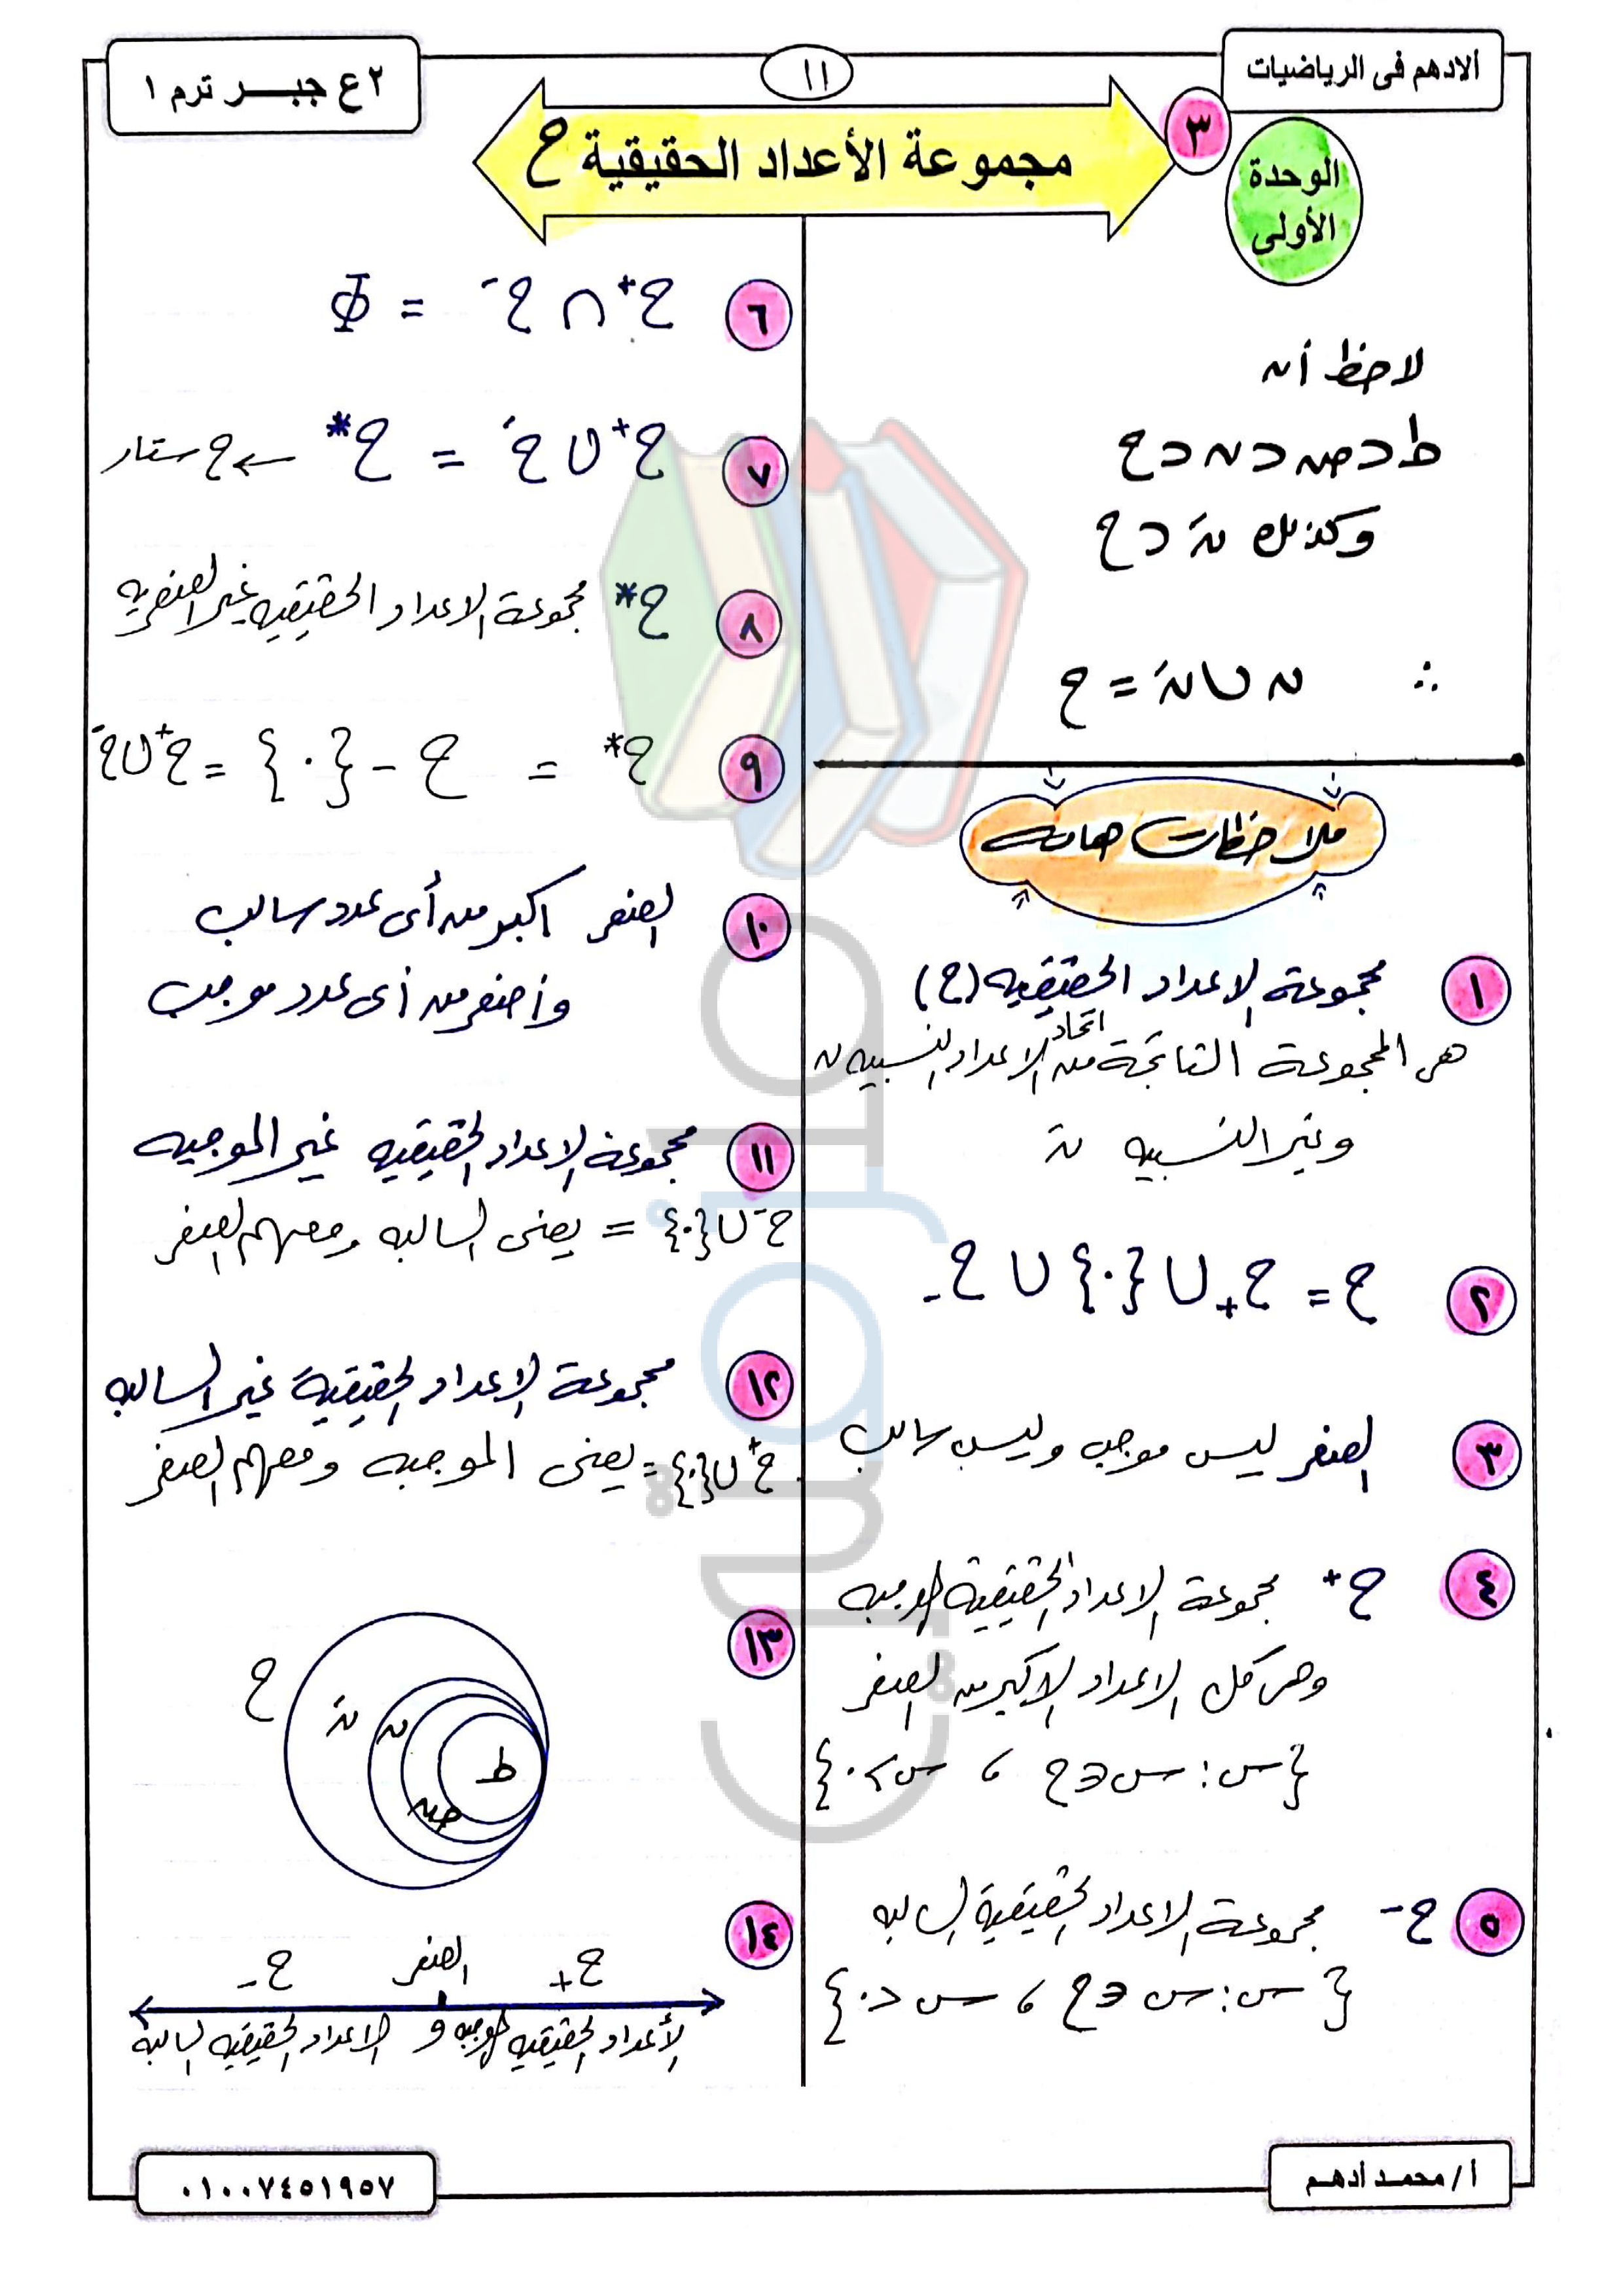 ألادهم فى الرياضيات
١١
٢ع جبـــر ترم ١
٣
الوحدة
الأولى
مجموعة الأعداد الحقيقية ح
لاحظ أن
ط ⊂ صـ ⊂ ن ⊂ ح
وكذلك نَ ⊂ ح
∴ ن ∪ نَ = ح
ملاحظات هامه
١ مجموعة الاعداد الحقيقيه (ح)
هى المجموعة الناتجة من اتحاد الاعداد النسبيه ن
وغير النسبيه نَ
٢ ح = ح+ ∪ {٠} ∪ ح-
٣ الصفر ليس موجب وليس سالب
٤ ح+ مجموعة الاعداد الحقيقية الموجبه
وهى كل الاعداد الاكبر من الصفر
{س : س ∈ ح ، س > ٠}
٥ ح- مجموعة الاعداد الحقيقية السالبه
{س : س ∈ ح ، س < ٠}
٦ ح+ ∩ ح- = Φ
٧ ح+ ∪ ح- = ح* ← ح ستار
٨ ح* مجموعة الاعداد الحقيقيه غير الصفريه
٩ ح* = ح - {٠} = ح+ ∪ ح-
١٠ الصفر اكبر من أى عدد سالب
وأصغر من أى عدد موجب
١١ مجموعة الاعداد الحقيقيه غير الموجبه
ح- ∪ {٠} = يعنى السالبه ومعهم الصفر
١٢ مجموعة الاعداد الحقيقية غير السالبه
ح+ ∪ {٠} = يعنى الموجبه ومعهم الصفر
١٣
ح
نَ
ن
صـ
ط
١٤
ح- الصفر ح+
الأعداد الحقيقيه الموجبه و الاعداد الحقيقيه السالبه
أ/ محمـد أدهـم
٠١٠٠٧٤٥١٩٥٧